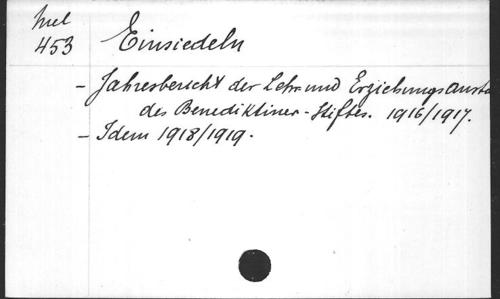 Mel
453 Einsiedeln
- Jahresbericht der Lehr- und Erziehungs Ansta
des Benediktiner-Stiftes. 1916/1917.
- Idem 1918/1919.